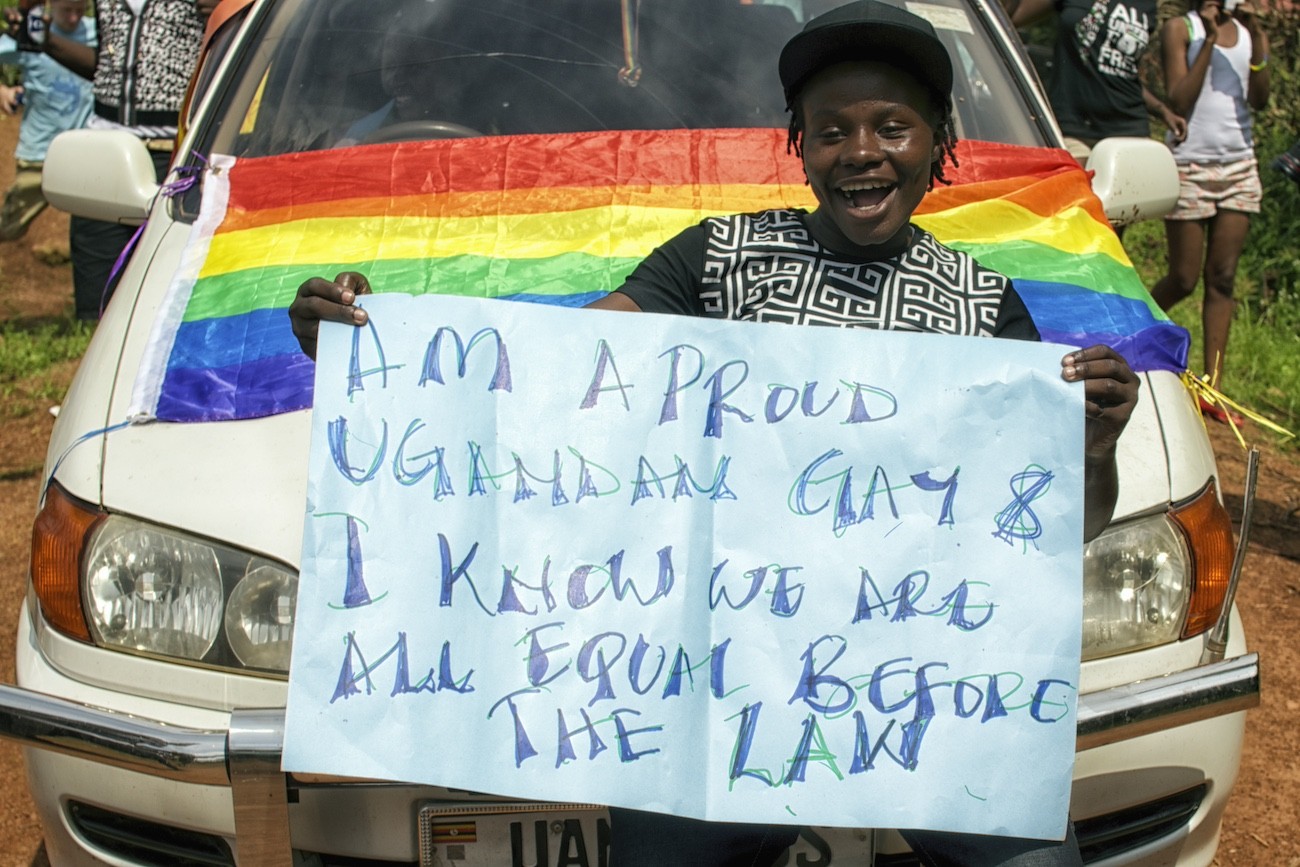 AM A PROUD
UGANDAN GAY &
I KNOW WE ARE
ALL EQUAL BEFORE
THE LAW
UAN